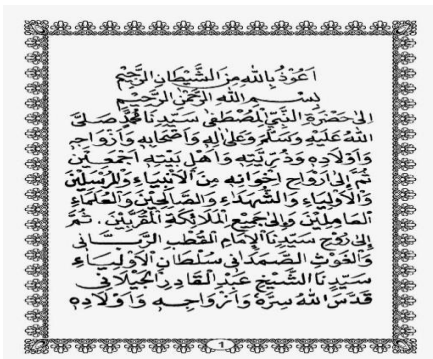 اَعُوْذُ بِاللهِ مِنَ الشَّيْطَانِ الرَّجِيْمِ
بِسْمِ اللهِ الرَّحْمٰنِ الرَّحِيْمِ
اِلٰى حَضْرَةِ النَّبِيِّ الْمُصْطَفٰى سَيِّدِنَا مُحَمَّدٍ صَلَّى
اللهُ عَلَيْهِ وَسَلَّمَ وَعَلٰى اٰلِهِ وَاَصْحَابِهِ وَاَزْوَاجِهِ
وَاَوْلَادِهِ وَذُرِّيَّتِهِ وَاَهْلِ بَيْتِهِ اَجْمَعِيْنَ
ثُمَّ اِلٰى اَرْوَاحِ اِخْوَانِهِ مِنَ الْاَنْبِيَاءِ وَالْمُرْسَلِيْنَ
وَالْاَوْلِيَاءِ وَالشُّهَدَاءِ وَالصَّالِحِيْنَ وَالْعُلَمَاءِ
الْعَامِلِيْنَ وَاِلٰى جَمِيْعِ الْمَلَائِكَةِ الْمُقَرَّبِيْنَ . ثُمَّ
اِلٰى رُوْحِ سَيِّدِنَا الْاِمَامِ الْقُطْبِ الرَّبَّانِى
وَالْغَوْثِ الصَّمَدَانِى سُلْطَانِ الْاَوْلِيَاءِ
سَيِّدِنَا الشَّيْخِ عَبْدِ الْقَادِرِ الْجَيْلَانِى
قَدَّسَ اللهُ سِرَّهُ وَاَزْوَاجِهِ وَاَوْلَادِهِ
1